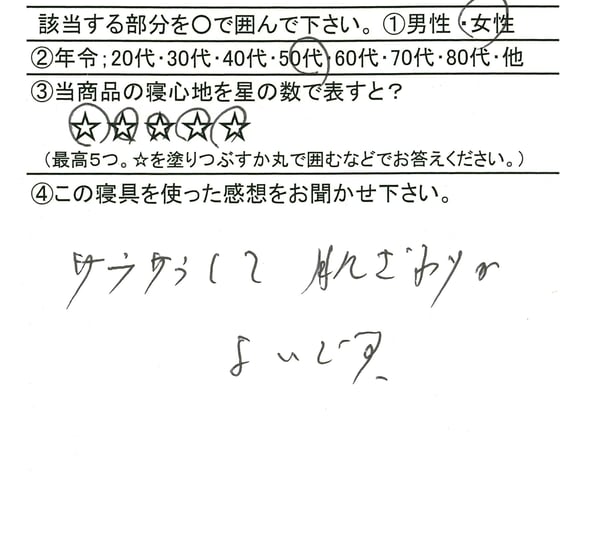 該当する部分を〇で囲んで下さい。①男性・女性
②年令；20代・30代・40代・50代・60代・70代・80代・他
③当商品の寝心地を星の数で表すと？
☆☆☆☆☆
（最高５つ。☆を塗りつぶすか丸で囲むなどでお答えください。）
④この寝具を使った感想をお聞かせ下さい。
サラサラして 肌ざわりが
よいです。